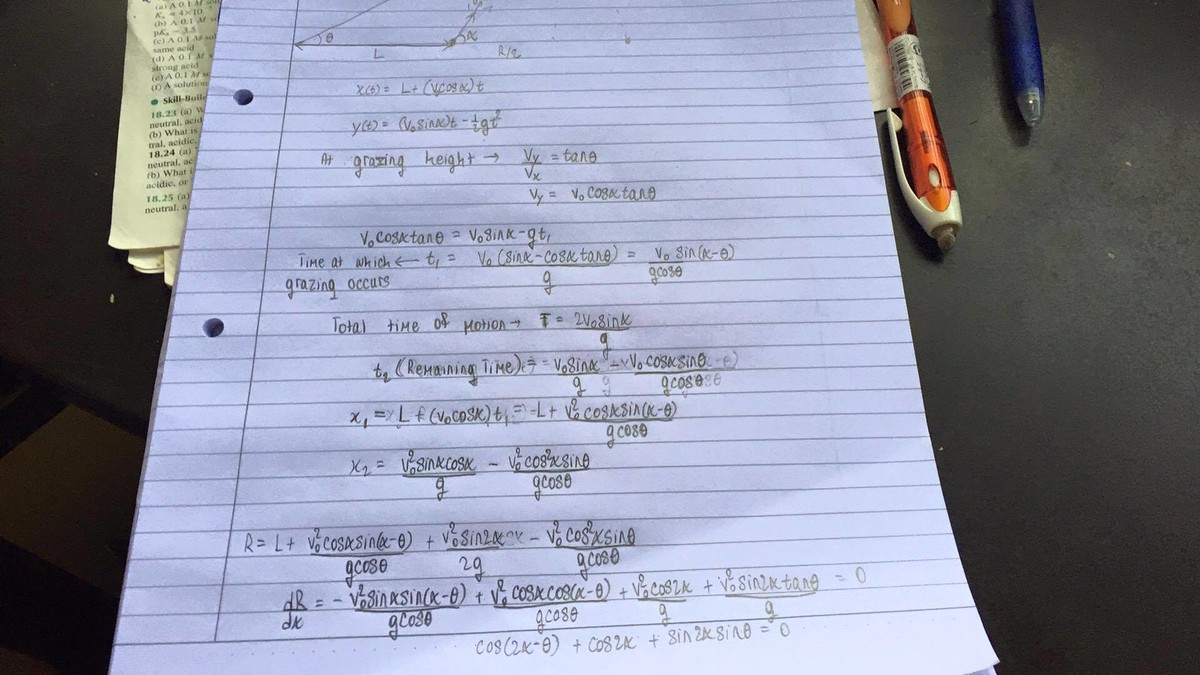 (b) A 0.1 M
pKa = 3.5
(c) A 0.1 M sol
same acid
(d) A 0.1 M
strong acid
(e) A 0.1 M
(f) A solution
Skill-Buil
18.23 (a) W
neutral, acid
(b) What is
tral, acidic,
18.24 (a)
neutral, ac
(b) What i
acidic, or
18.25 (a)
neutral, a
θ α
L R/2
x(t) = L + (v₀cosα)t
y(t) = (v₀sinα)t - ½gt²
At grazing height → Vy/Vx = tanθ
Vy = v₀cosαtanθ
v₀cosαtanθ = v₀sinα - gt₁
Time at which ← t₁ = v₀(sinα-cosαtanθ)/g = v₀ sin(α-θ)/gcosθ
grazing occurs
Total time of motion → T = 2v₀sinα/g
t₂ (Remaining Time) = v₀sinα/g + v₀cosαsinθ/gcosθ
x₁ = L + (v₀cosα)t₁ = L + v₀²cosαsin(α-θ)/gcosθ
x₂ = v₀²sinαcosα/g - v₀²cos²αsinθ/gcosθ
R = L + v₀²cosαsin(α-θ)/gcosθ + v₀²sin2α/2g - v₀²cos²αsinθ/gcosθ
dR/dα = - v₀²sinαsin(α-θ)/gcosθ + v₀²cosαcos(α-θ)/gcosθ + v₀²cos2α/g + v₀²sin2αtanθ/g = 0
cos(2α-θ) + cos2α + sin2αsinθ = 0